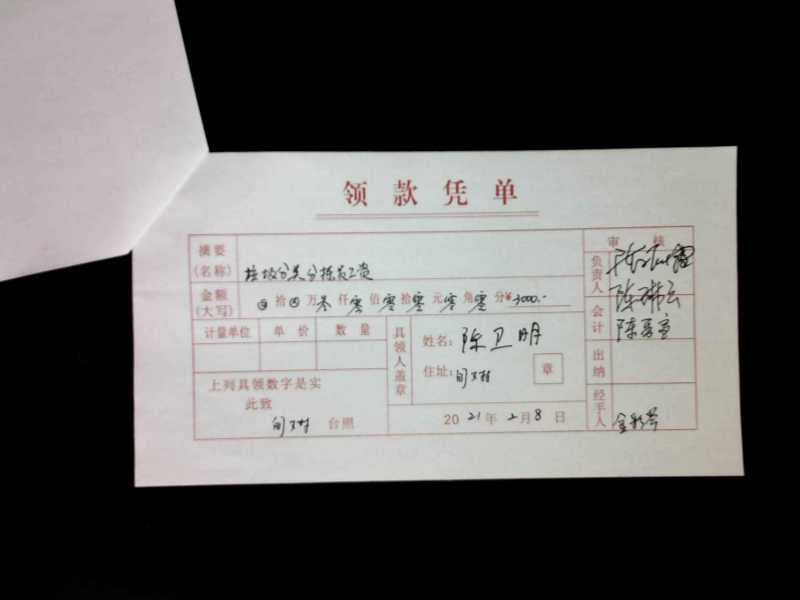 领款凭单
摘要
(名称) 垃圾分类分拣员工资
审核
金额
(大写) ⊗拾⊗万叁仟零佰零拾零元零角零分¥3000.-
负责人
会计 陈
计量单位 单价 数量
具领人盖章
姓名: 陈卫明
住址: 旬村
章
出纳
上列具领数字是实
此致
旬村 台照
2021年2月8日
经手人 金